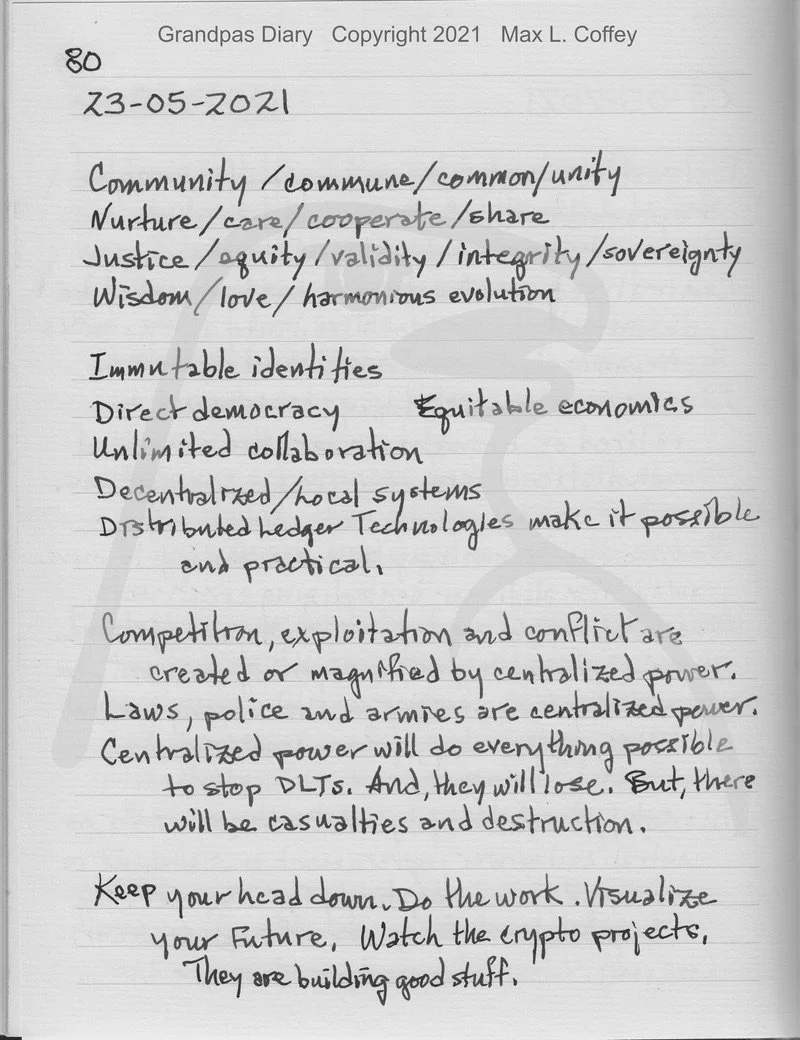 Grandpas Diary Copyright 2021 Max L. Coffey
80
23-05-2021
Community / commune / common / unity
Nurture / care / cooperate / share
Justice / equity / validity / integrity / sovereignty
Wisdom / love / harmonious evolution
Immutable identities
Direct democracy Equitable economics
Unlimited collaboration
Decentralized / Local systems
Distributed Ledger Technologies make it possible
and practical.
Competition, exploitation and conflict are
created or magnified by centralized power.
Laws, police and armies are centralized power.
Centralized power will do everything possible
to stop DLTs. And, they will lose. But, there
will be casualties and destruction.
Keep your head down. Do the work. Visualize
your Future. Watch the crypto projects,
They are building good stuff.